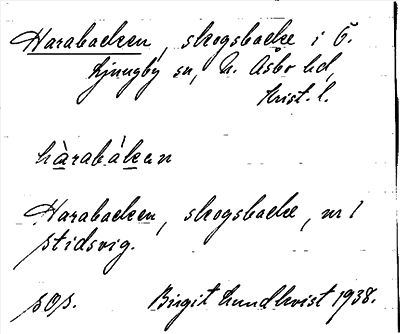 Harabacken, skogsbacke i Ö.
Ljungby sn, N. Åsbo hd,
Krist. l.
hàrabákan
Harabacken, skogsbacke, nr 1
Stidsvig.
sOs. Birgit Lundkvist 1938.